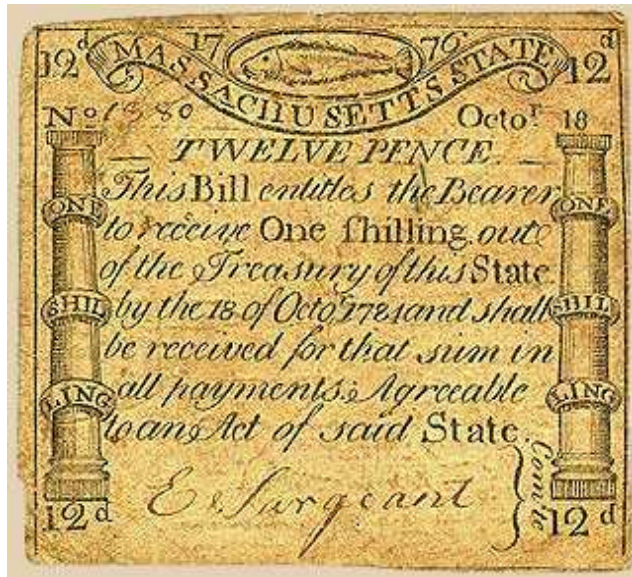 12d 17 76 12d
MASSACHUSETTS STATE
No 1380 Octor. 18
TWELVE PENCE.
This Bill entitles the Bearer
to receive One ſhilling out
of the Treasury of this State
by the 18 of Octor. 1784 and shall
be received for that sum in
all payments. Agreeable
to an Act of said State.
ONE ONE
SHIL SHIL
LING LING
E Sargeant
Comte
12d 12d